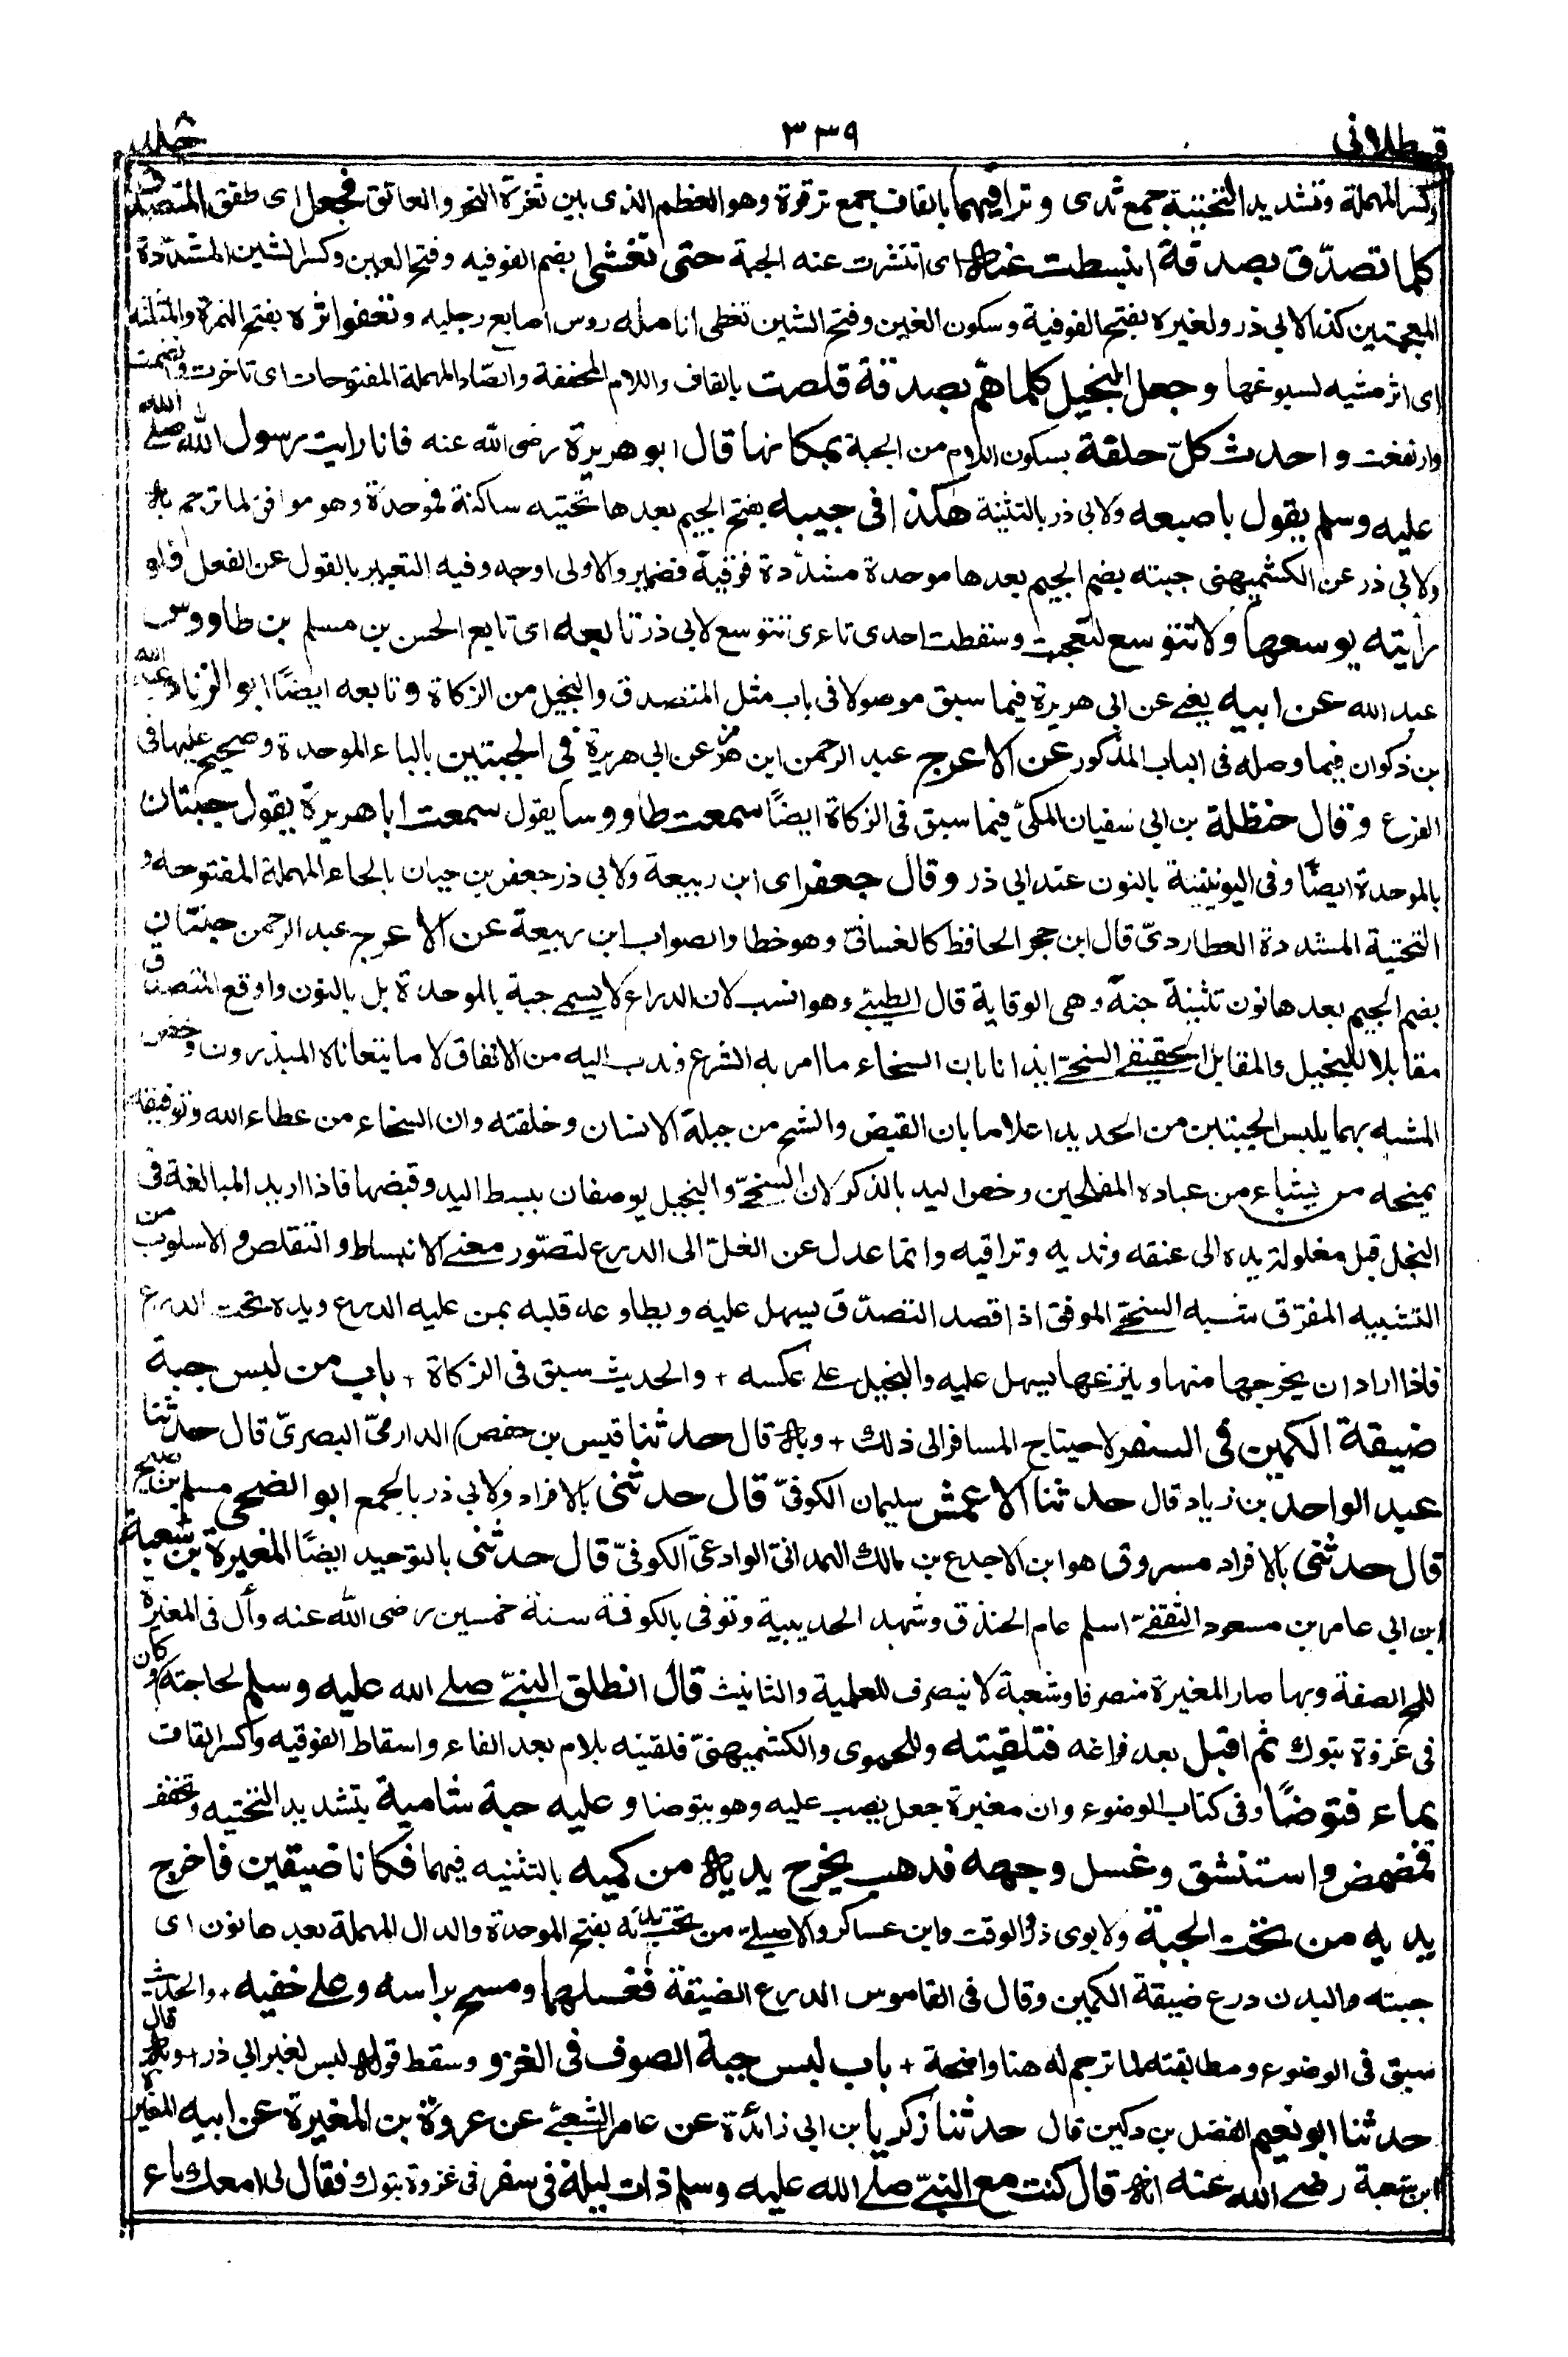 قسطلانی ٣٣٩ جلد ٨
وكسر المهملة وتشديد التحتية جمع ثدى وتراقيهما بالقاف جمع ترقوة وهو العظم الذى بين ثغرة النحر والعاتق فجعل اى طفق المتصدق
كلما تصدّق بصدقة انبسطت عنه اى انتشرت عنه الجبة حتى تغشى بضم الفوقيه وفتح الغين وكسر الشين المشدّدة
المعجمتين كذا لابي ذر ولغيره بفتح الفوقية وسكون الغين وفتح الشين تغطى انامله روس اصابع رجليه وتعفو اثره بفتح الهمزة والمثلثة
اى اثر مشيه لسبوغها وجعل البخيل كلما همّ بصدقة قلصت بالقاف واللام المخففة والصّاد المهملة المفتوحات اى تاخرت وانضمت
وارتفعت واخذت كلّ حلقة بسكون اللام من الجبة بمكانها قال ابو هريرة رضى الله عنه فانا رايت رسول الله صلے الله
عليه وسلم يقول باصبعه ولابي ذر بالتثنية هٰكذا فى جيبه بفتح الجيم بعدها تحتيه ساكنة فموحدة وهو موافق لما ترجم به
ولابي ذر عن الكشميهنى جبته بضم الجيم بعدها موحدة مشدّدة فوقية فضمير والاولى اوجه وفيه التعبير بالقول عن الفعل فلو
رأيته يوسعها ولا تتوسع لتعجبت وسقطت احدى تاءى تتوسع لابي ذر تابعه اى تابع الحسن بن مسلم بن طاووس
عبد الله عن ابيه يعنے عن ابي هريرة فيما سبق موصولا فى باب مثل المتصدق والبخيل من الزكاة وتابعه ايضًا ابو الزناد عبد الله
بن ذكوان فيما وصله فى الباب المذكور عن الاعرج عبد الرحمن ابن هرمز عن ابي هريرة فى الجبتين بالباء الموحدة وصحيح عليها فى
الفرع وقال حنظلة بن ابي سفيان المكىّ فيما سبق فى الزكاة ايضًا سمعت طاووسا يقول سمعت ابا هريرة يقول جبتان
بالموحدة ايضًا وفى اليونينية بالنون عند ابي ذر وقال جعفر اى ابن ربيعة ولابي ذر جعفر بن حيان بالحاء المهملة المفتوحه و
التحتية المشددة العطاردىّ قال ابن حجر الحافظ كالغسانىّ وهو خطا والصواب ابن ربيعة عن الاعرج عبد الرحمن جنتان
بضم الجيم بعدها نون تثنية جنة وهى الوقاية قال الطيبے وهو انسب لان الدراع لا يسمى جبة بالموحدة بل بالنون واوقع المتصدق
مقابلا للبخيل والمقابل الحقيقے السخىّ ايذانا بان السخاء ما امر به الشرع وندب اليه من الانفاق لا ما يتعاناه المبذرون وخص
المشبه بهما بلبس الجبتين من الحديد اعلاما بان القبض والشح من جبلة الانسان وخلقته وان السخاء من عطاء الله وتوفيقه
يمنحه من يشاء من عباده المفلحين وخص اليد بالذكر لان السخىّ والبخيل يوصفان ببسط اليد وقبضها فاذا اريد المبالغة فى
البخل قيل مغلولة يده الى عنقه وثديه وتراقيه وانما عدل عن الغلّ الى الدرع لتصوّر معنے الانبساط والتقلص والاسلوب من
التشبيه المفرّق شبه السخىّ الموفق اذا قصد التصدّق يسهل عليه ويطاوعه قلبه بمن عليه الدرع ويده تحت الدرع
فاذا اراد ان يخرجها منها وينزعها يسهل عليه والبخيل على عكسه + والحديث سبق فى الزكاة + باب من لبس جبة
ضيقة الكمين فى السفر لاحتياج المسافر الى ذلك + وبه قال حدثنا قيس بن حفص) الدارمىّ البصرىّ قال حدثنا
عبد الواحد بن زياد قال حدثنا الاعمش سليمان الكوفىّ قال حدثنى بالافراد ولابي ذر بالجمع ابو الضحى مسلم بن صبيح
قال حدثنى بالافراد مسروق هو ابن الاجدع بن مالك الهمدانىّ الوادعىّ الكوفىّ قال حدثنى بالتوحيد ايضًا المغيرة بن شعبة
ابن ابي عامر بن مسعود الثقفےّ اسلم عام الخندق وشهد الحديبية وتوفى بالكوفة سنة خمسين رضى الله عنه وأل فى المغيرة
للمح الصفة وبها صار المغيرة منصرفا وشعبة لا ينصرف للعلمية والثانيث قال انطلق النبىّ صلے الله عليه وسلم لحاجته وكان
فى غزوة تبوك ثم اقبل بعد فراغه فتلقيته وللحموى والكشميهنىّ فلقيته بلام بعد الفاء واسقاط الفوقيه وكسر القاف
بماء فتوضّا وفى كتاب الوضوء وان مغيرة جعل يصب عليه وهو يتوضا وعليه جبة شامية بتشديد التحتيه وتخفف
فمضمض واستنشق وغسل وجهه فذهب يخرج يديه من كميه بالتثنيه فيهما فكانا ضيقين فاخرج
يديه من تحت الجبة ولابوى ذر والوقت وابن عساكر والاصيلےّ من تحت بدنه بفتح الموحدة والدال المهملة بعدها نون اى
جبته والبدن درع ضيقة الكمين وقال فى القاموس الدرع الضيقة فغسلهما ومسح براسه وعلے خفيه + والحديث
سبق فى الوضوء ومطابقته لما ترجم له هنا واضحة + باب لبس جبة الصوف فى الغزو وسقط قوله لبس لغير ابي ذر + وبه قال
حدثنا ابو نعيم الفضل بن دكين قال حدثنا زكريا بن ابي زائدة عن عامر الشعبےّ عن عروة بن المغيرة عن ابيه المغيرة
ابن شعبة رضے الله عنه انه قال كنت مع النبىّ صلے الله عليه وسلم ذات ليلة فى سفر فى غزوة تبوك فقال لى امعك ماء